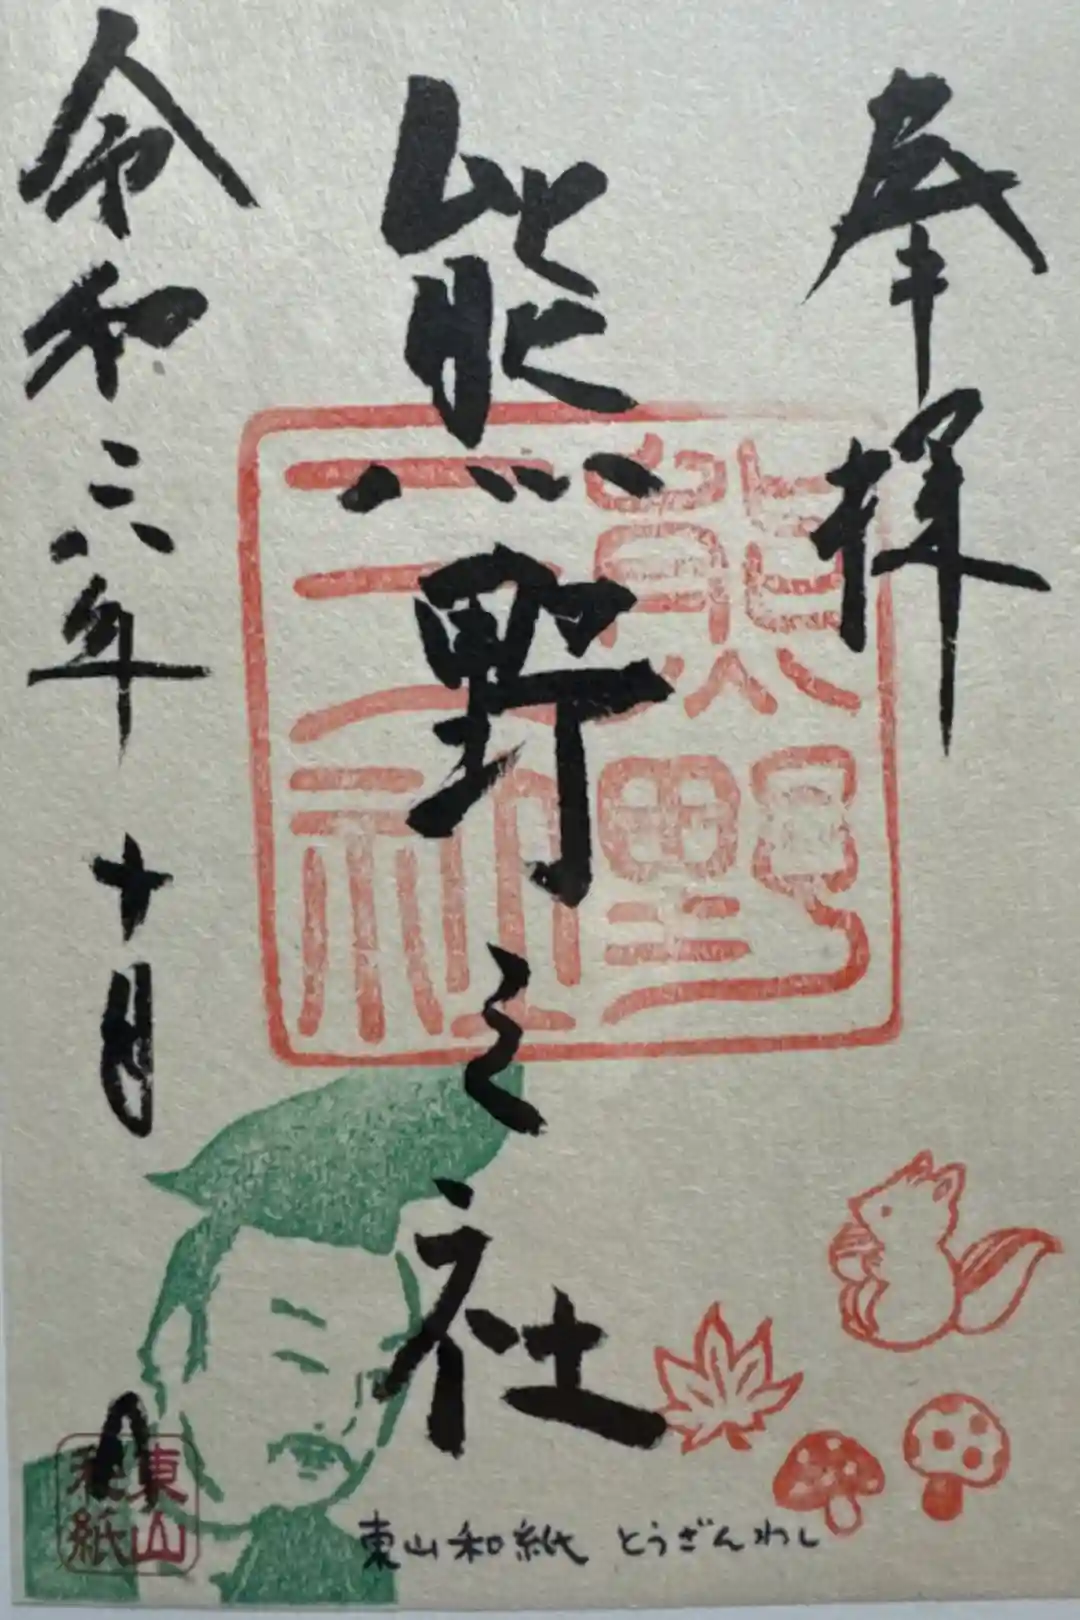 奉拝
熊野之社
令和六年十月 日
熊野
之社
東山
和紙
東山和紙 とうざんわし